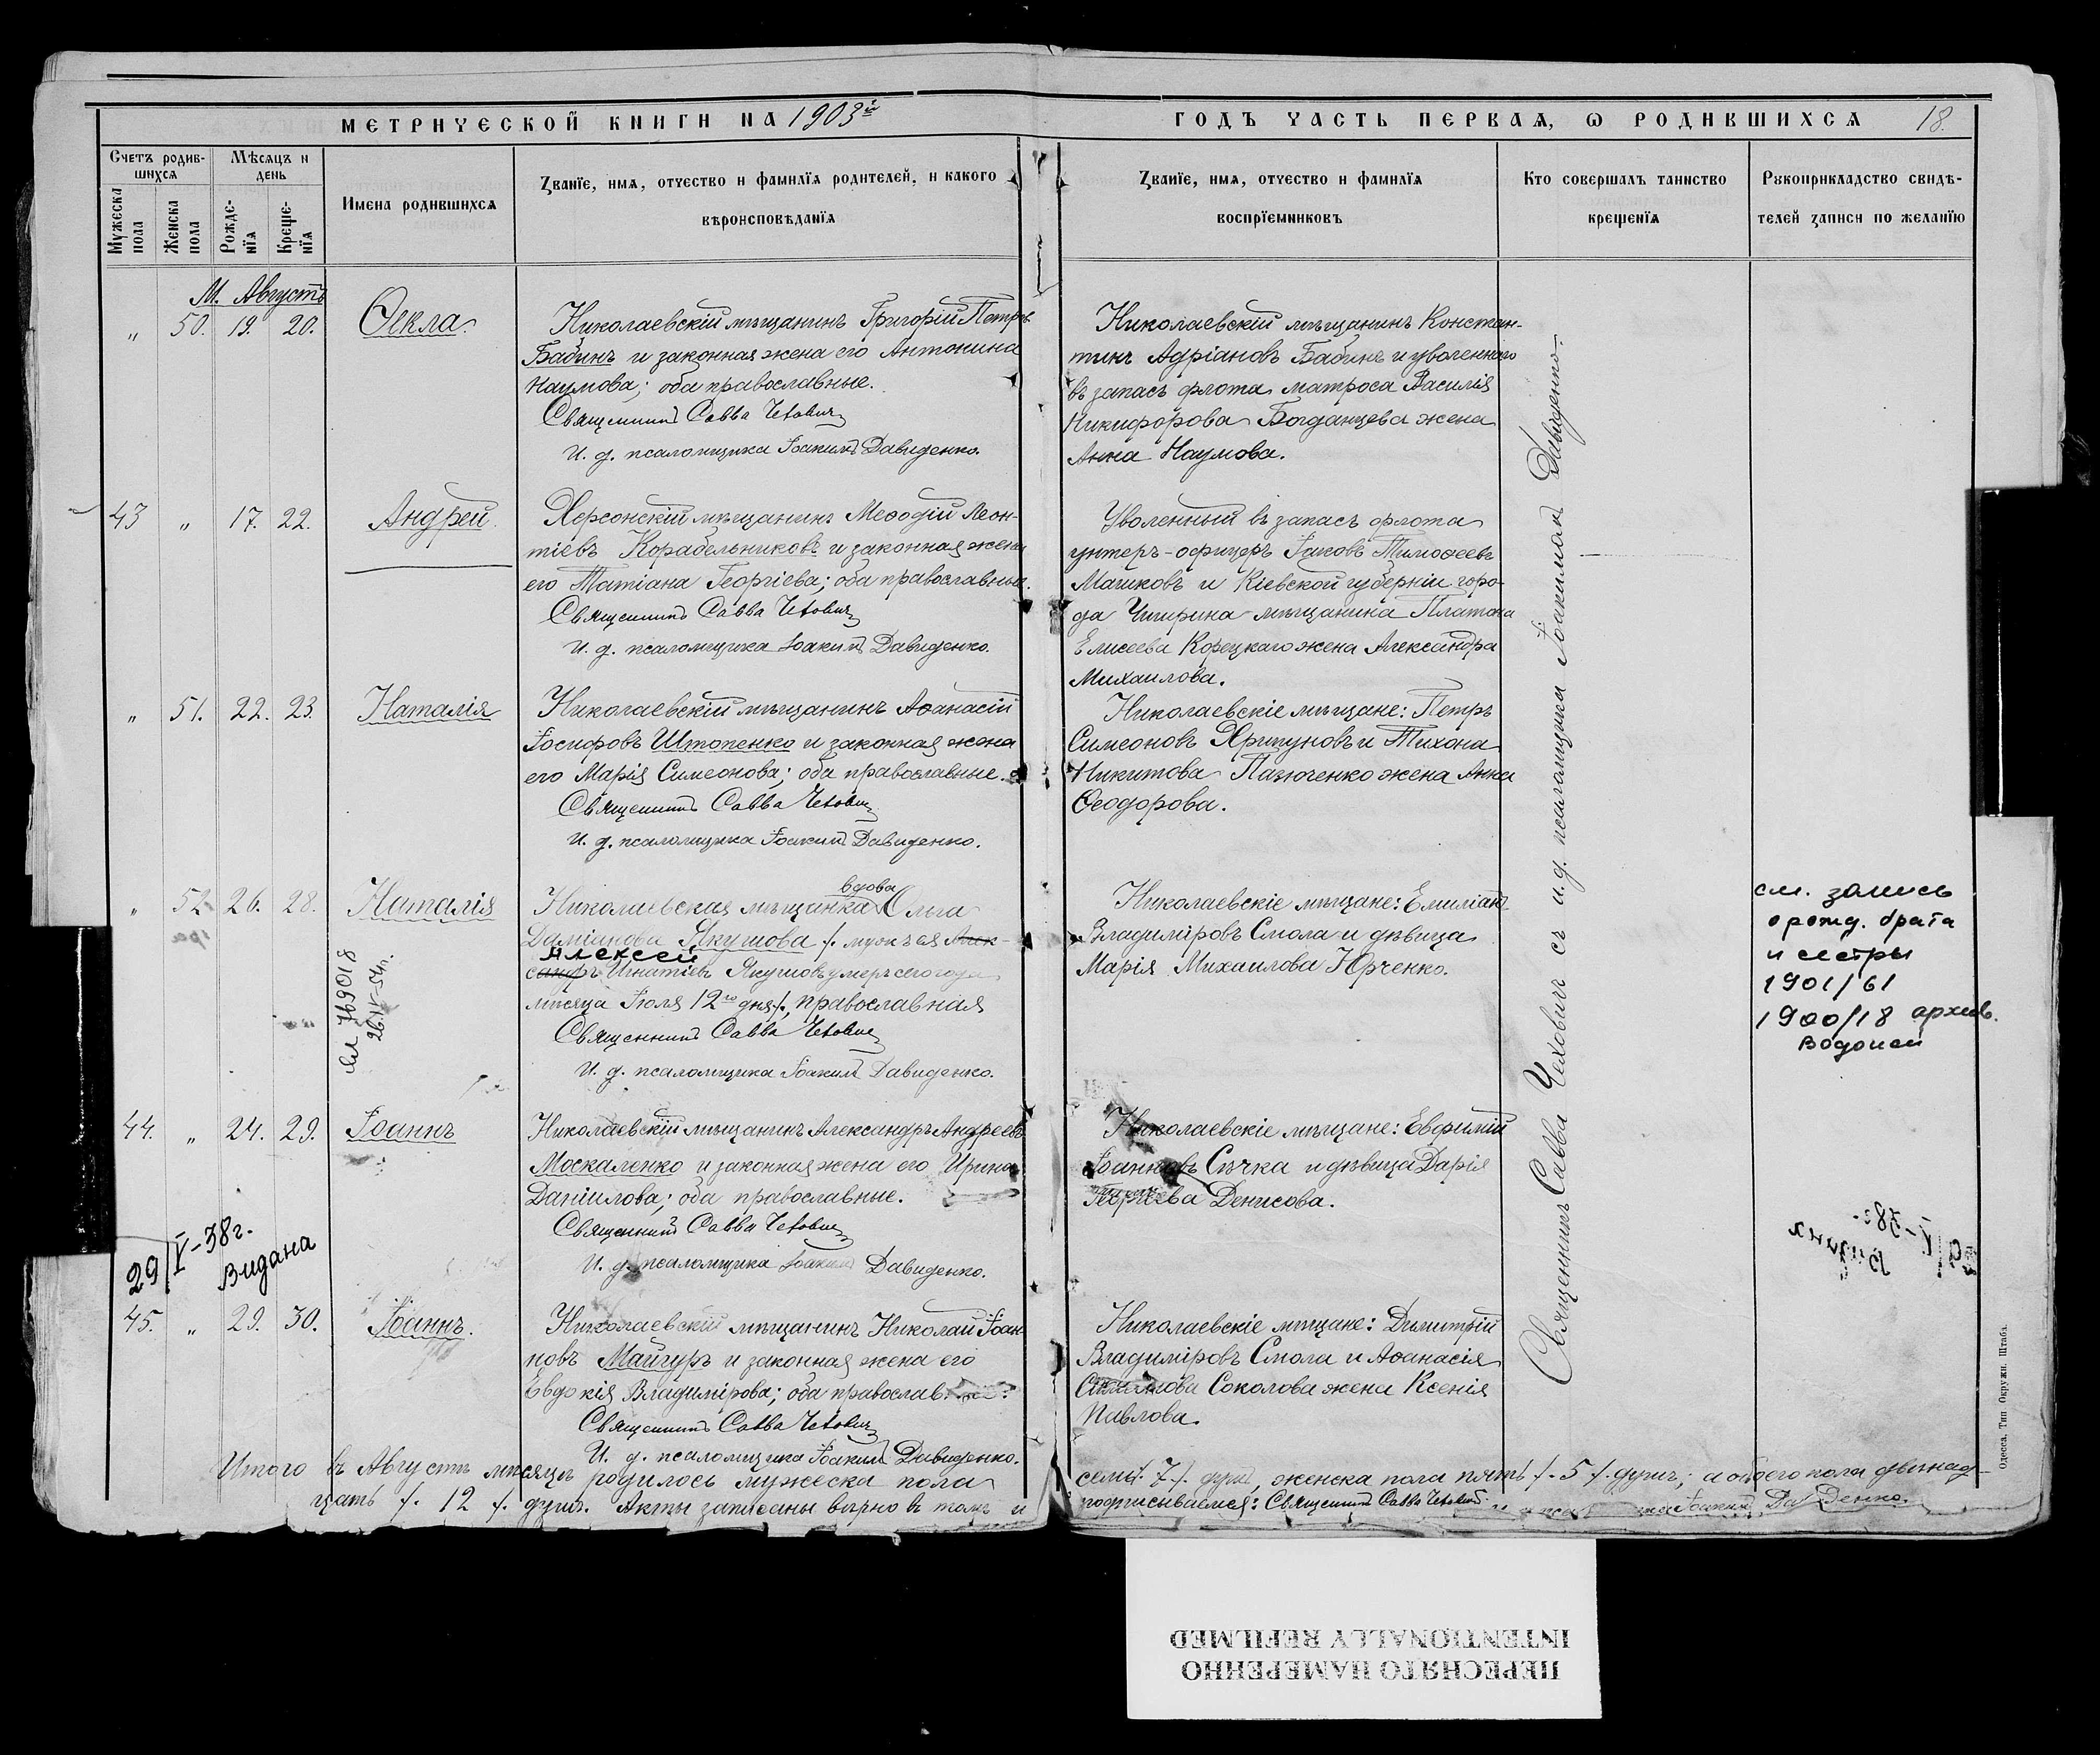 МЕТРИЧЕСКОЙ КНИГИ НА 1903й
ГОДЪ ЧАСТЬ ПЕРВАЯ, Ѡ РОДИВШИХСЯ 18.
Счетъ родив-
шихся
Мужеска пола
Женска пола
Мѣсяцъ и
день
Рожде-
нїя
Креще-
нїя
Имена родившихся
Званїе, имя, отчество и фамилїя родителей, и какого
вѣроисповѣданїя
Званїе, имя, отчество и фамилїя
воспрїемниковъ
Кто совершалъ таинство
крещенїя
Рукоприкладство свидѣ-
телей записи по желанїю
М. Августъ
„ 50. 19. 20. Ѳекла.
Николаевскій мѣщанинъ Григорій Петровъ
Бабинъ и законная жена его Антонина
Наумова; оба православные.
Священникъ Савва Чеховичъ
И. д. псаломщика Іоакимъ Давиденко.
Николаевскій мѣщанинъ Констан-
тинъ Адріановъ Бабинъ и уволеннаго
въ запасъ флота матроса Василія
Никифорова Богданцева жена
Анна Наумова.
43 „ 17. 22. Андрей.
Херсонскій мѣщанинъ Меѳодій Леон-
тіевъ Корабельниковъ и законная жена
его Татіана Георгіева; оба православные.
Священникъ Савва Чеховичъ
И. д. псаломщика Іоакимъ Давиденко.
Уволенный въ запасъ флота
унтеръ-офицеръ Іаковъ Тимоѳеевъ
Машковъ и Кіевской губерніи горо-
да Чигирина мѣщанина Платона
Елисеева Корецкаго жена Александра
Михаилова.
„ 51. 22. 23. Наталія
Николаевскій мѣщанинъ Аѳанасій
Іосифовъ Штопенко и законная жена
его Марія Симеонова; оба православные.
Священникъ Савва Чеховичъ
И. д. псаломщика Іоакимъ Давиденко.
Николаевскіе мѣщане: Петръ
Симеоновъ Хрипуновъ и Тихона
Никитова Пазюченко жена Анна
Ѳеодорова.
„ 52 26. 28. Наталія
вдова
Николаевская мѣщанка Ольга
Даміанова Якушова /. мужъ ея Алек-
Алексей
сандръ Игнатіевъ Якушовъ умеръ сего года
мѣсяца Іюля 12го дня/., православная
Священникъ Савва Чеховичъ
И. д. псаломщика Іоакимъ Давиденко.
Николаевскіе мѣщане: Емиліанъ
Владиміровъ Смола и дѣвица
Марія Михаилова Юрченко.
см. запись
о рожд. брата
и сестры
1901/61
1900/18 архив.
Водопой
769018
26.IV-54г.
44. „ 24. 29. Іоаннъ
Николаевскій мѣщанинъ Александръ Андреевъ
Москаленко и законная жена его Ирина
Даніилова; оба православные.
Священникъ Савва Чеховичъ
И. д. псаломщика Іоакимъ Давиденко.
Николаевскіе мѣщане: Евфимій
Іоанновъ Сѣчка и дѣвица Дарія
Георгіева Денисова.
29/V-38г.
Видана
45. „ 29. 30. Іоаннъ.
Николаевскій мѣщанинъ Николай Іоан-
новъ Майгуръ и законная жена его
Евдокія Владимірова; оба православ.
Священникъ Савва Чеховичъ
И. д. псаломщика Іоакимъ Давиденко.
Николаевскіе мѣщане: Димитрій
Владиміровъ Смола и Аѳанасія
Соколова жена Ксенія
Павлова.
Священникъ Савва Чеховичъ съ и. д. псаломщика Іоакимомъ Давиденко.
Итого въ Августѣ мѣсяцѣ родилось мужеска пола семь /. 7 /. душъ, женска пола пять /. 5 /. душъ; а обоего пола двѣнад-
цать /. 12 /. душъ. Акты записаны вѣрно въ томъ и подписываемся: Священникъ Савва Чеховичъ и Іоакимъ Давиденко.
Одесса. Тип. Окружн. Штаба.
ПЕРЕСНЯТО НАМЕРЕННО
INTENTIONALLY REFILMED